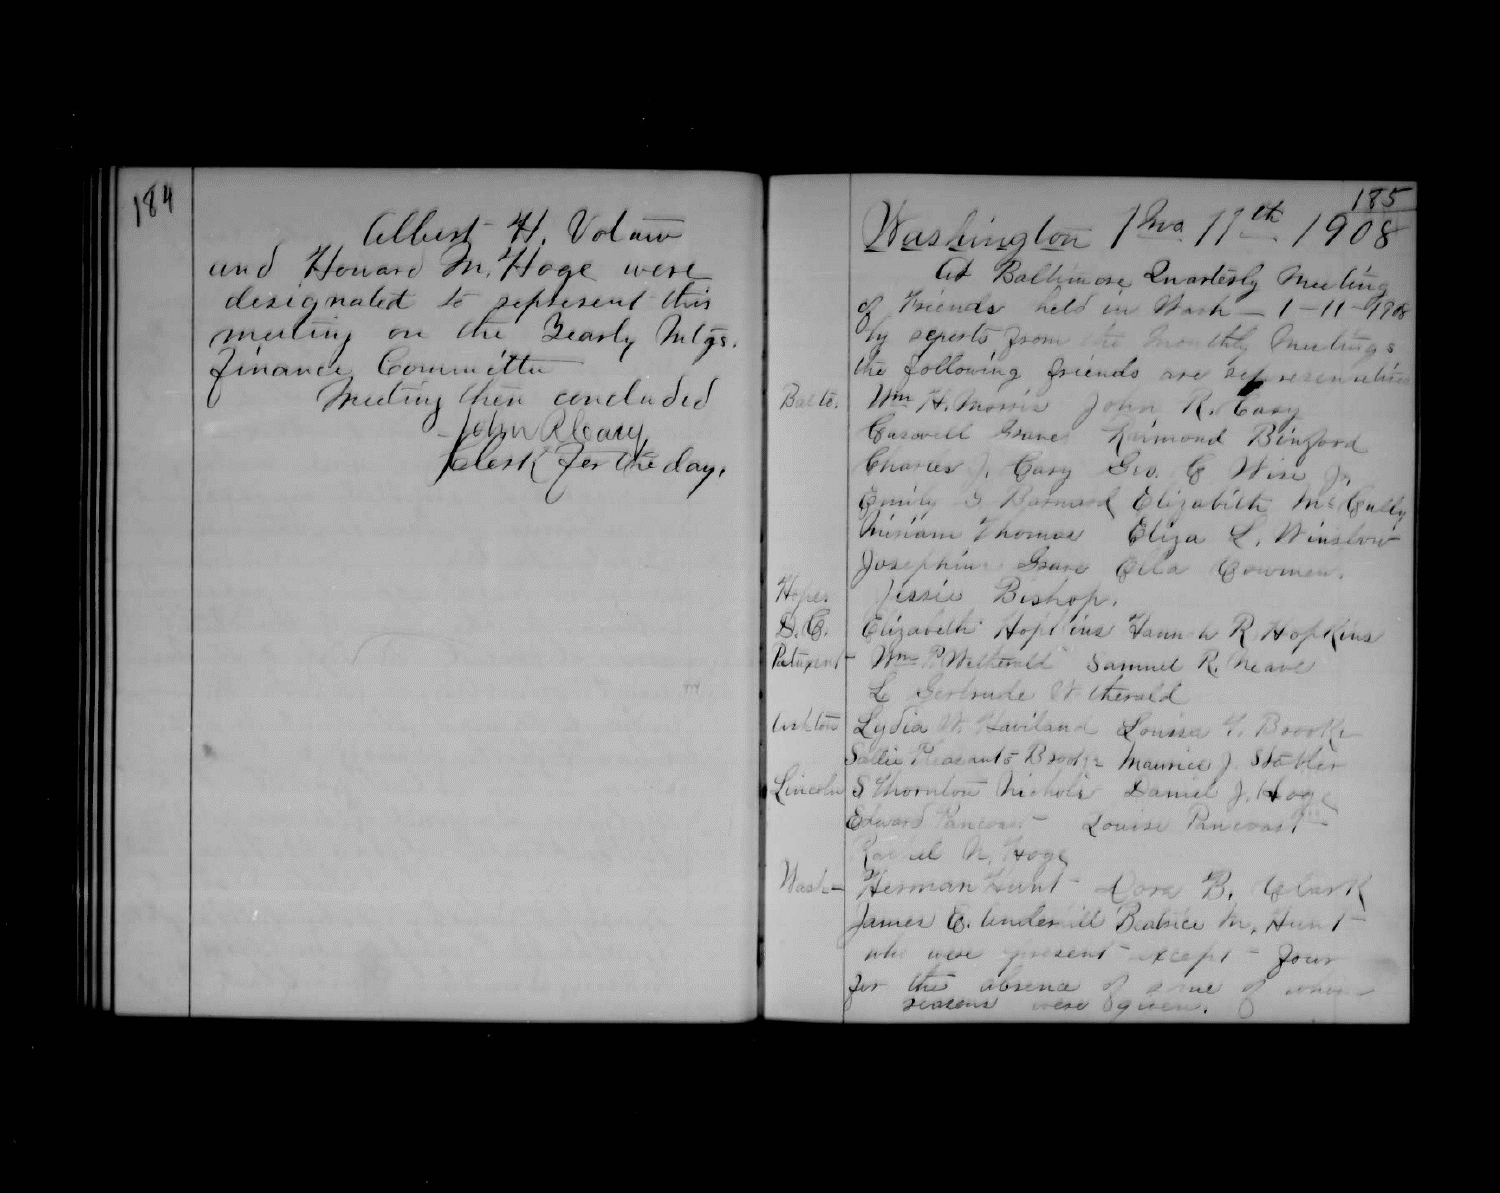 184
Albert H. Votaw
and Howard M. Hoge were
designated to represent this
meeting on the Yearly Mtgs.
Finance Committee
Meeting then concluded
John R Cary
Clerk for the day.
185
Washington 1 Mo 11th 1908
At Baltimore Quarterly Meeting
of Friends held in Wash - 1-11-1908
by reports from the Monthly Meetings
the following friends are representatives
Balto. Wm H. Morris John R. Cary
Caswell Grave Raimond Binford
Charles J. Cary Geo. C Wise Jr.
Emily G Barnard Elizabeth McCully
Miriam Thomas Eliza L. Winslow
Josephine Grave Ella Cowman.
Hopes Jessie Bishop.
D.C. Elizabeth Hopkins Hannah R. Hopkins
Patuxent Wm P. Wetherald Samuel R. Neave
L Gertrude Wetherald
Ashton Lydia W. Haviland Louisa T. Brooke
Sallie Pleasants Brooke Maurice J. Stabler
Lincoln S Thornton Nichols Daniel J. Hoge
Edward Pancoast Louise Pancoast
Rachel N. Hoge
Wash- Herman Hunt Dora B. Clark
James E. Underhill Beatrice M. Hunt
who were present except four
for the absence of some of whom
reasons were given.